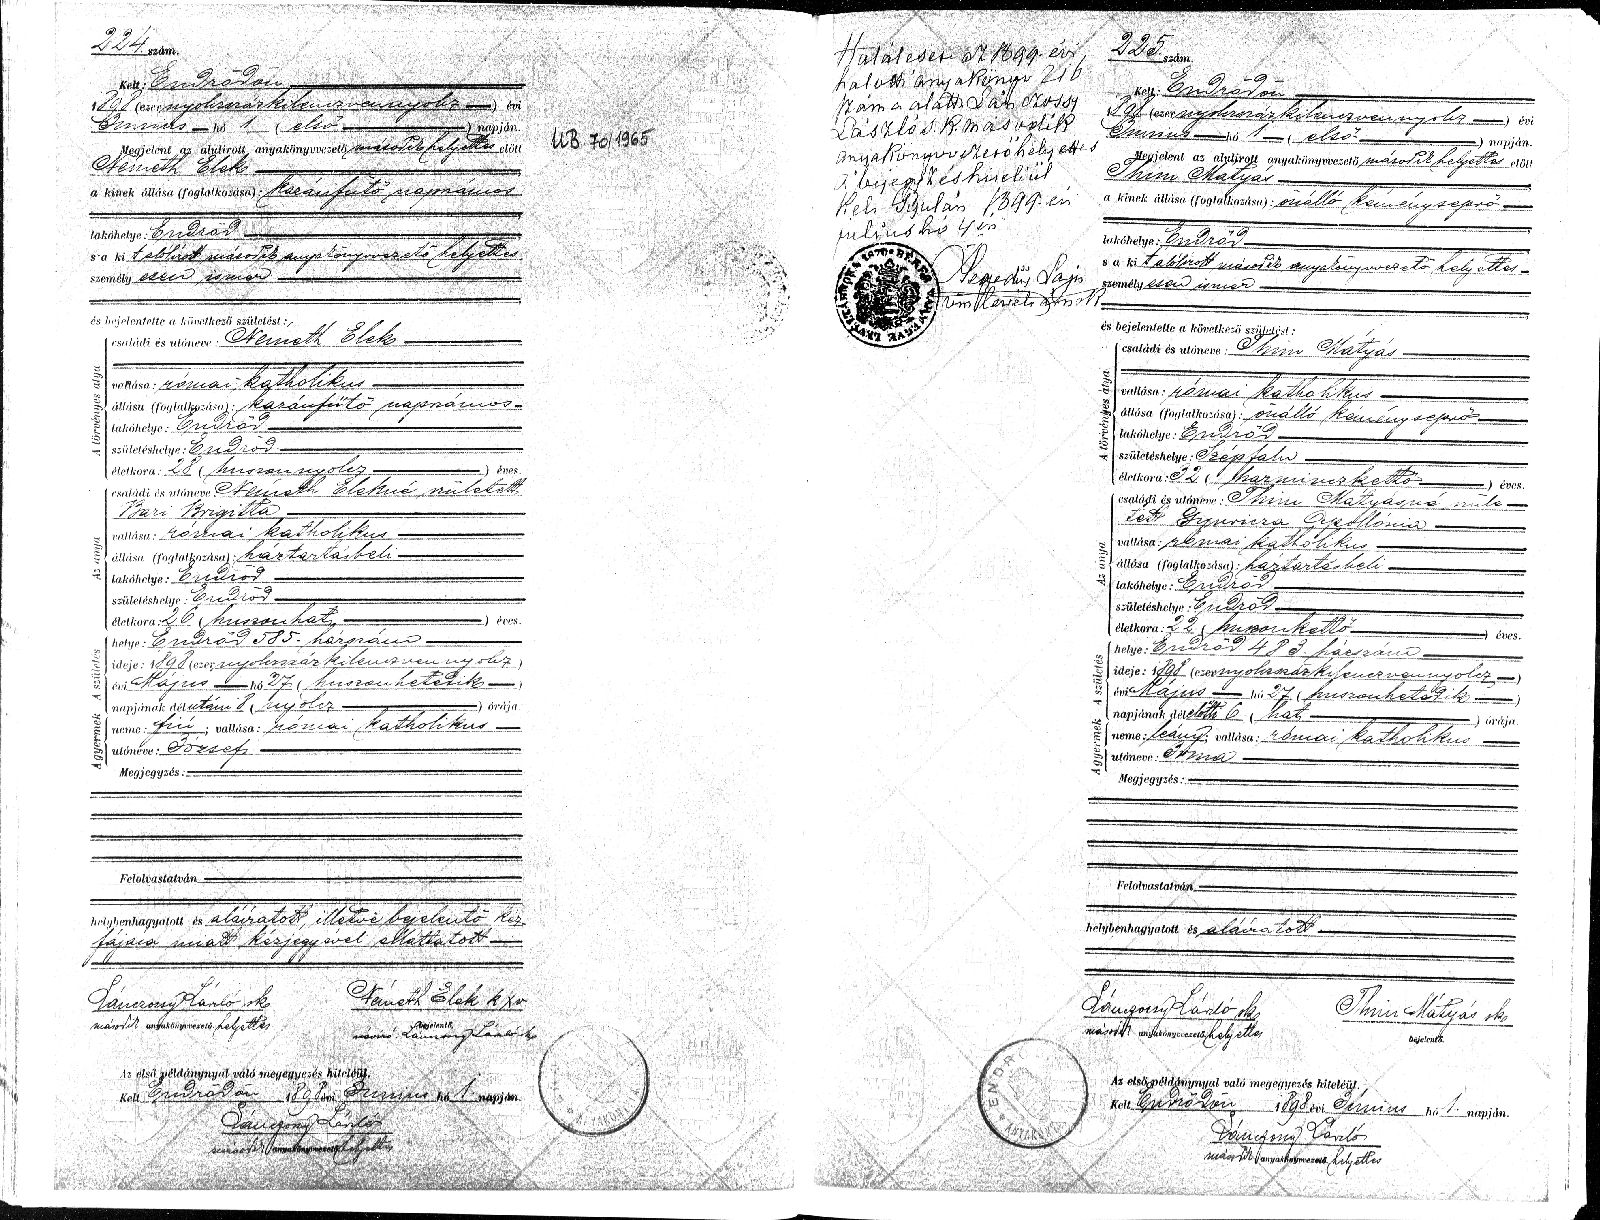 224. szám.
Kelt: Endrődön
1898 (ezer nyolczszázkilenczvennyolcz) évi
Junius hó 1 (első) napján.
Megjelent az alulirott anyakönyvvezető második helyettes előtt
Németh Elek
a kinek állása (foglalkozása): kazánfűtő napszámos
lakóhelye: Endrőd
s a ki t alólirott második anyakönyvvezető helyettes
személyesen ismer
és bejelentette a következő születést:
A törvényes atya
családi és utóneve: Németh Elek
vallása: római katholikus
állása (foglalkozása): kazánfűtő napszámos
lakóhelye: Endrőd
születéshelye: Endrőd
életkora: 28 (huszonnyolcz) éves.
Az anya
családi és utóneve Németh Elekné született
Bari Brigitta
vallása: római katholikus
állása (foglalkozása): háztartásbeli
lakóhelye: Endrőd
születéshelye: Endrőd
életkora: 26 (huszonhat) éves.
A születés
helye: Endrőd 585. házszám
ideje: 1898 (ezer nyolczszázkilenczvennyolcz)
évi Május hó 27 (huszonhetedik)
napjának délután 8 (nyolcz) órája
A gyermek
neme: fiú; vallása: római katholikus
utóneve: József
Megjegyzés:
Felolvastatván
helybenhagyatott és aláiratott, illetve bejelentő kéz
fájása miatt kézjegyével elláttatott
Lánczosy László sk
második anyakönyvvezető helyettes
Németh Elek k x v
bejelentő,
Lánczosy László sk
Az első példánynyal való megegyezés hiteléül.
Kelt Endrődön 1898 évi Junius hó 1. napján.
Lánczosy László
második anyakönyvvezető helyettes
UB 70/1965
Halálesete az 1899. évi
halotti anyakönyv 216
száma alatt Lánczossy
László s. k. második
anyakönyvvezető helyettes
bejegyzés hiteléül
Kelt Gyulán 1899. évi
julius hó
Hegedüs Lajos
225. szám.
Kelt: Endrődön
1898 (ezer nyolczszázkilenczvennyolcz) évi
Junius hó 1 (első) napján.
Megjelent az alulirott anyakönyvvezető második helyettes előtt
Thim Mátyás
a kinek állása (foglalkozása): önálló kéményseprő
lakóhelye: Endrőd
s a ki t alólirott második anyakönyvvezető helyettes
személyesen ismer
és bejelentette a következő születést:
A törvényes atya
családi és utóneve: Thim Mátyás
vallása: római katholikus
állása (foglalkozása): önálló kéményseprő
lakóhelye: Endrőd
születéshelye: Szépfalu
életkora: 32 (harminczkettő) éves.
Az anya
családi és utóneve: Thim Mátyásné szüle
tett Gyuricza Apollónia
vallása: római katholikus
állása (foglalkozása): háztartásbeli
lakóhelye: Endrőd
születéshelye: Endrőd
életkora: 22 (huszonkettő) éves.
A születés
helye: Endrőd 483. házszám
ideje: 1898 (ezer nyolczszázkilenczvennyolcz)
évi Május hó 27 (huszonhetedik)
napjának délelőtt 6 (hat) órája
A gyermek
neme: leány; vallása: római katholikus
utóneve: Irma
Megjegyzés:
Felolvastatván
helybenhagyatott és aláiratott
Lánczosy László sk
második anyakönyvvezető helyettes
Thim Mátyás sk
bejelentő.
Az első példánynyal való megegyezés hiteléül.
Kelt Endrődön 1898 évi Junius hó 1. napján.
Lánczosy László
második anyakönyvvezető helyettes